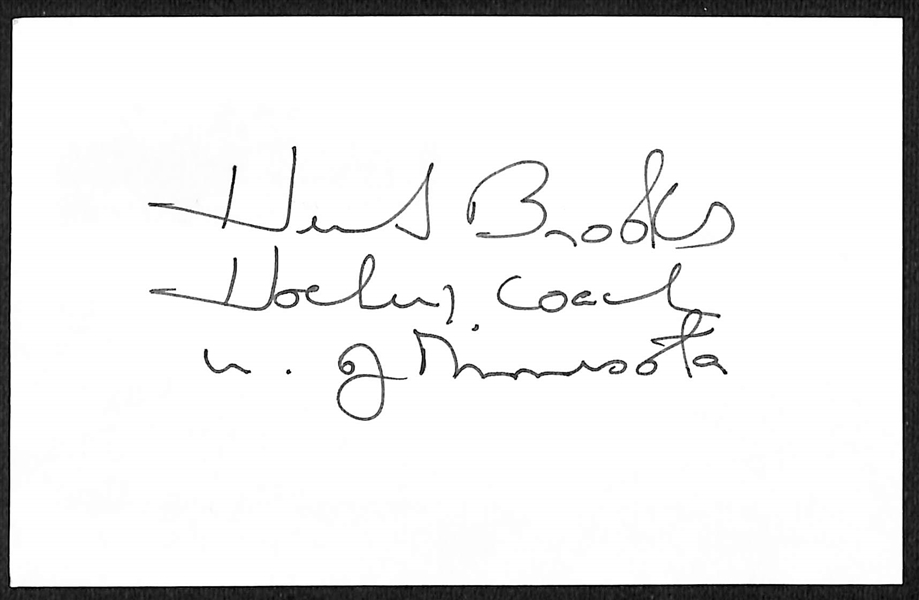 Herb Brooks
Hockey Coach
U. of Minnesota